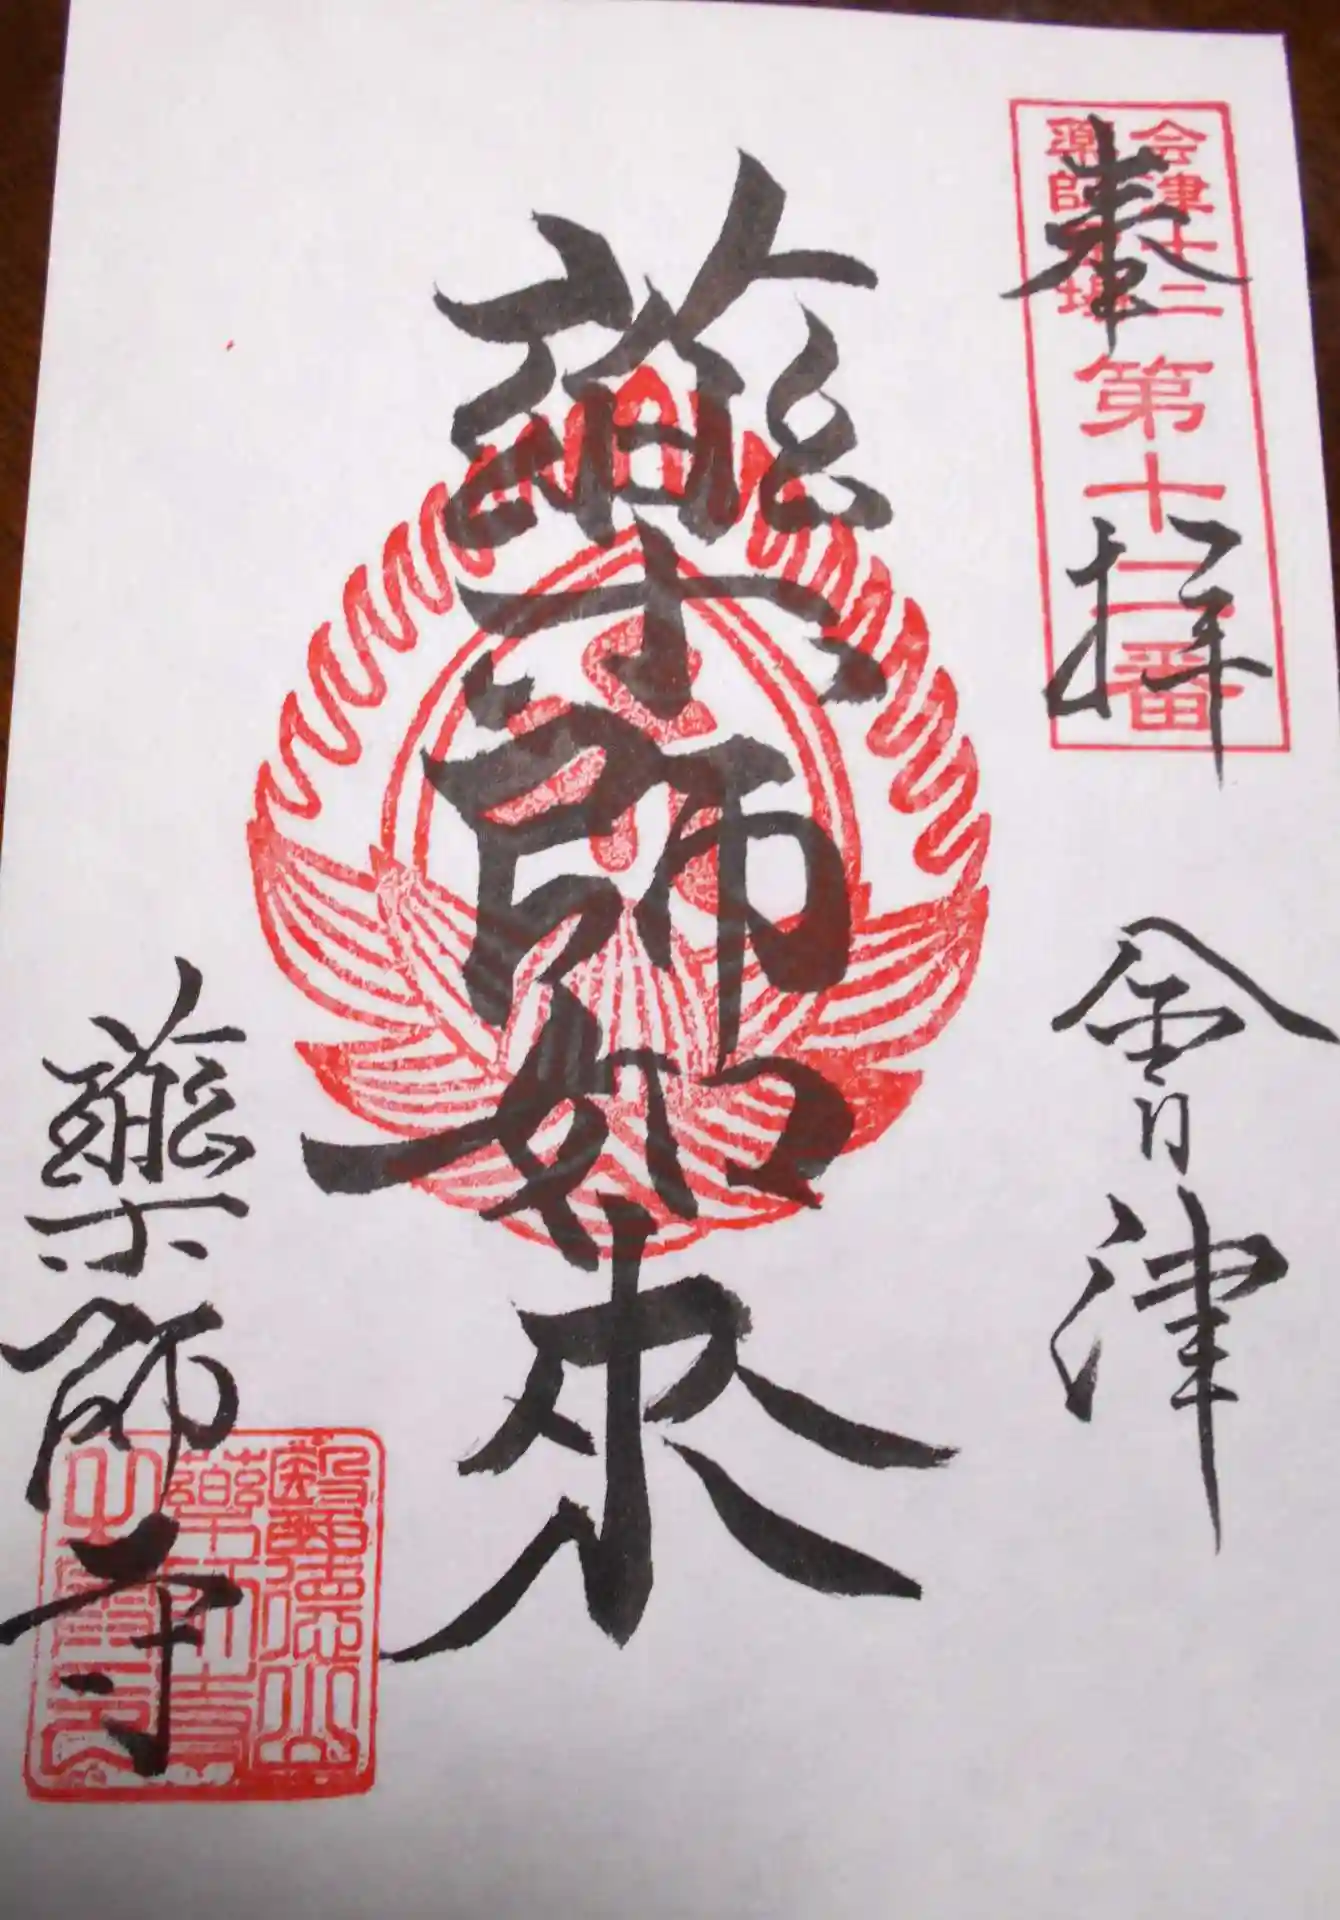 奉拝
会津十二
薬師霊場
第十二番
會津
藥師如来
藥師寺